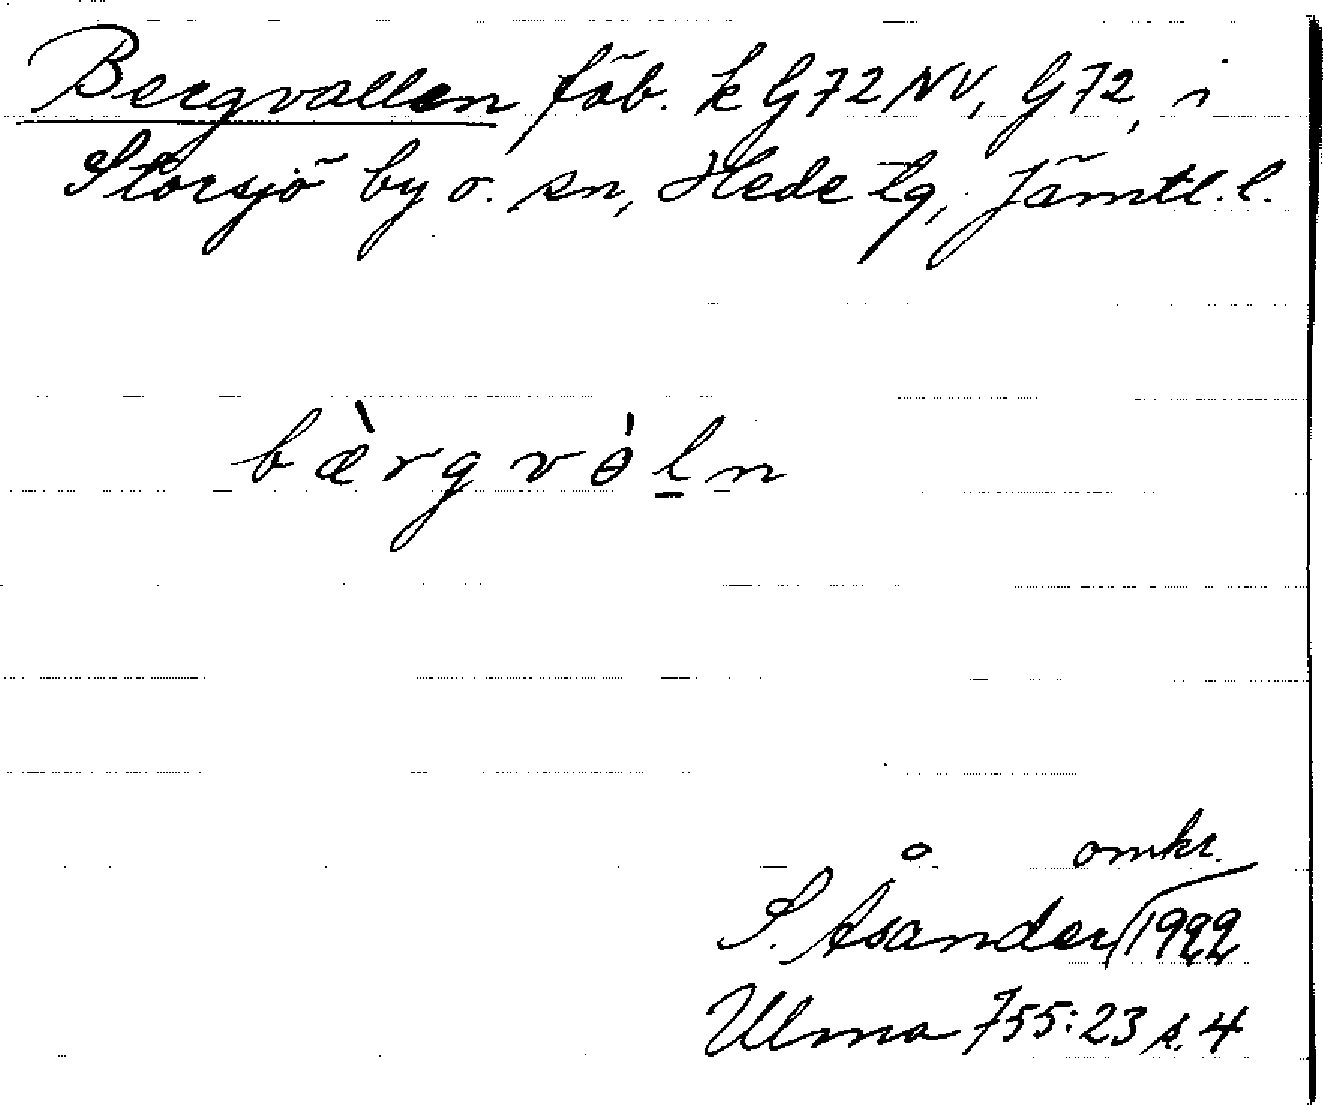 Bergvallen fäb. k G72NV, G72, i
Storsjö by o. sn, Hede tg, Jämtl. l.
bæ̀rgvɵ̍l̲n
omkr.
S. Åsander/1922
Ulma 755:23 s. 4